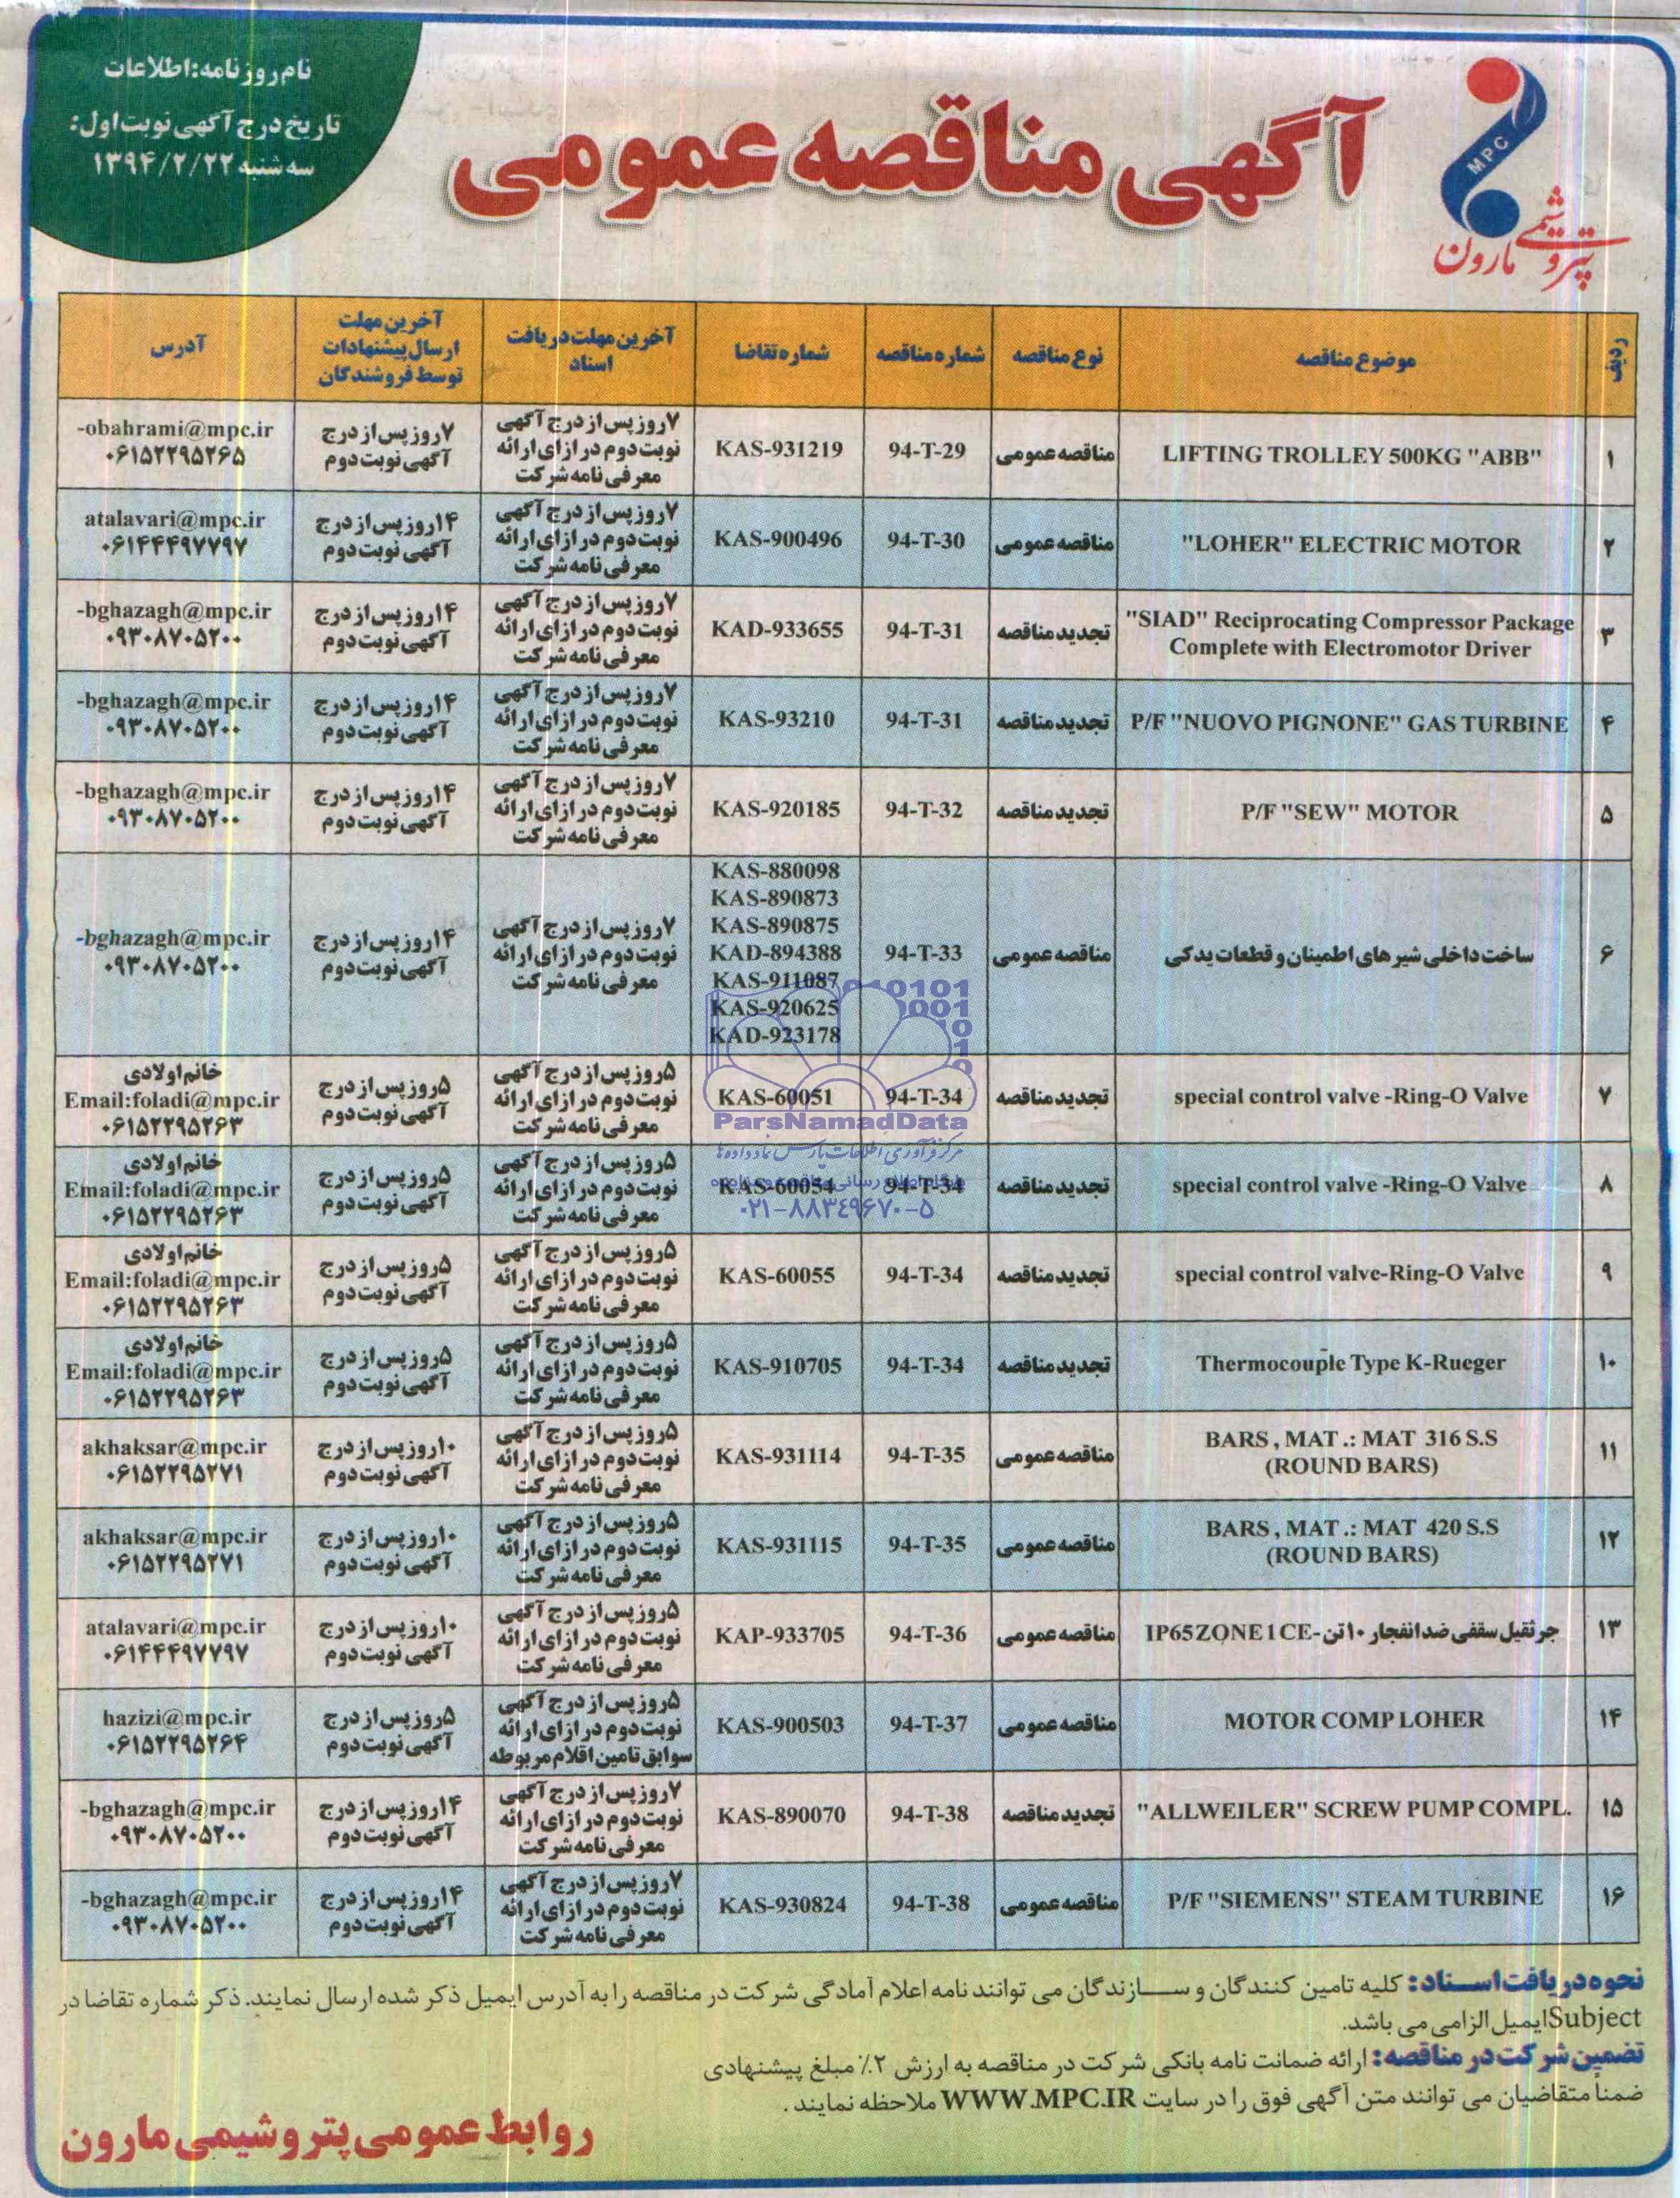 نام روزنامه: اطلاعات
تاریخ درج آگهی نوبت اول:
سه شنبه ۱۳۹۴/۲/۲۲
آگهی مناقصه عمومی
MPC
پتروشیمی مارون
ردیف موضوع مناقصه نوع مناقصه شماره مناقصه شماره تقاضا آخرین مهلت دریافت اسناد آخرین مهلت ارسال پیشنهادات توسط فروشندگان آدرس
۱ LIFTING TROLLEY 500KG "ABB" مناقصه عمومی 94-T-29 KAS-931219 ۷روز پس از درج آگهی نوبت دوم در ازای ارائه معرفی نامه شرکت ۷روز پس از درج آگهی نوبت دوم -obahrami@mpc.ir ۰۶۱۵۲۲۹۵۲۶۵
۲ "LOHER" ELECTRIC MOTOR مناقصه عمومی 94-T-30 KAS-900496 ۷روز پس از درج آگهی نوبت دوم در ازای ارائه معرفی نامه شرکت ۱۴روز پس از درج آگهی نوبت دوم atalavari@mpc.ir ۰۶۱۴۴۴۹۷۷۹۷
۳ "SIAD" Reciprocating Compressor Package Complete with Electromotor Driver تجدید مناقصه 94-T-31 KAD-933655 ۷روز پس از درج آگهی نوبت دوم در ازای ارائه معرفی نامه شرکت ۱۴روز پس از درج آگهی نوبت دوم -bghazagh@mpc.ir ۰۹۳۰۸۷۰۵۲۰۰
۴ P/F "NUOVO PIGNONE" GAS TURBINE تجدید مناقصه 94-T-31 KAS-93210 ۷روز پس از درج آگهی نوبت دوم در ازای ارائه معرفی نامه شرکت ۱۴روز پس از درج آگهی نوبت دوم -bghazagh@mpc.ir ۰۹۳۰۸۷۰۵۲۰۰
۵ P/F "SEW" MOTOR تجدید مناقصه 94-T-32 KAS-920185 ۷روز پس از درج آگهی نوبت دوم در ازای ارائه معرفی نامه شرکت ۱۴روز پس از درج آگهی نوبت دوم -bghazagh@mpc.ir ۰۹۳۰۸۷۰۵۲۰۰
۶ ساخت داخلی شیرهای اطمینان و قطعات یدکی مناقصه عمومی 94-T-33 KAS-880098 KAS-890873 KAS-890875 KAD-894388 KAS-911087 KAS-920625 KAD-923178 ۷روز پس از درج آگهی نوبت دوم در ازای ارائه معرفی نامه شرکت ۱۴روز پس از درج آگهی نوبت دوم -bghazagh@mpc.ir ۰۹۳۰۸۷۰۵۲۰۰
۷ special control valve -Ring-O Valve تجدید مناقصه 94-T-34 KAS-60051 ۵روز پس از درج آگهی نوبت دوم در ازای ارائه معرفی نامه شرکت ۵روز پس از درج آگهی نوبت دوم خانم اولادی Email:foladi@mpc.ir ۰۶۱۵۲۲۹۵۲۶۳
۸ special control valve -Ring-O Valve تجدید مناقصه 94-T-34 KAS-60054 ۵روز پس از درج آگهی نوبت دوم در ازای ارائه معرفی نامه شرکت ۵روز پس از درج آگهی نوبت دوم خانم اولادی Email:foladi@mpc.ir ۰۶۱۵۲۲۹۵۲۶۳
۹ special control valve-Ring-O Valve تجدید مناقصه 94-T-34 KAS-60055 ۵روز پس از درج آگهی نوبت دوم در ازای ارائه معرفی نامه شرکت ۵روز پس از درج آگهی نوبت دوم خانم اولادی Email:foladi@mpc.ir ۰۶۱۵۲۲۹۵۲۶۳
۱۰ Thermocouple Type K-Rueger تجدید مناقصه 94-T-34 KAS-910705 ۵روز پس از درج آگهی نوبت دوم در ازای ارائه معرفی نامه شرکت ۵روز پس از درج آگهی نوبت دوم خانم اولادی Email:foladi@mpc.ir ۰۶۱۵۲۲۹۵۲۶۳
۱۱ BARS , MAT .: MAT 316 S.S (ROUND BARS) مناقصه عمومی 94-T-35 KAS-931114 ۵روز پس از درج آگهی نوبت دوم در ازای ارائه معرفی نامه شرکت ۱۰روز پس از درج آگهی نوبت دوم akhaksar@mpc.ir ۰۶۱۵۲۲۹۵۲۷۱
۱۲ BARS , MAT .: MAT 420 S.S (ROUND BARS) مناقصه عمومی 94-T-35 KAS-931115 ۵روز پس از درج آگهی نوبت دوم در ازای ارائه معرفی نامه شرکت ۱۰روز پس از درج آگهی نوبت دوم akhaksar@mpc.ir ۰۶۱۵۲۲۹۵۲۷۱
۱۳ جرثقیل سقفی ضد انفجار ۱۰ تن-IP65 ZONE 1 CE مناقصه عمومی 94-T-36 KAP-933705 ۵روز پس از درج آگهی نوبت دوم در ازای ارائه معرفی نامه شرکت ۱۰روز پس از درج آگهی نوبت دوم atalavari@mpc.ir ۰۶۱۴۴۴۹۷۷۹۷
۱۴ MOTOR COMP LOHER مناقصه عمومی 94-T-37 KAS-900503 ۵روز پس از درج آگهی نوبت دوم در ازای ارائه سوابق تامین اقلام مربوطه ۵روز پس از درج آگهی نوبت دوم hazizi@mpc.ir ۰۶۱۵۲۲۹۵۲۶۴
۱۵ "ALLWEILER" SCREW PUMP COMPL. تجدید مناقصه 94-T-38 KAS-890070 ۷روز پس از درج آگهی نوبت دوم در ازای ارائه معرفی نامه شرکت ۱۴روز پس از درج آگهی نوبت دوم -bghazagh@mpc.ir ۰۹۳۰۸۷۰۵۲۰۰
۱۶ P/F "SIEMENS" STEAM TURBINE مناقصه عمومی 94-T-38 KAS-930824 ۷روز پس از درج آگهی نوبت دوم در ازای ارائه معرفی نامه شرکت ۱۴روز پس از درج آگهی نوبت دوم -bghazagh@mpc.ir ۰۹۳۰۸۷۰۵۲۰۰
ParsNamadData
مرکز فرآوری اطلاعات پارس نماد داده ها
۰۲۱-۸۸۳۴۹۶۷۰-۵
نحوه دریافت اسناد: کلیه تامین کنندگان و سازندگان می توانند نامه اعلام آمادگی شرکت در مناقصه را به آدرس ایمیل ذکر شده ارسال نمایند. ذکر شماره تقاضا در
Subject ایمیل الزامی می باشد.
تضمین شرکت در مناقصه: ارائه ضمانت نامه بانکی شرکت در مناقصه به ارزش ۲٪ مبلغ پیشنهادی
ضمناً متقاضیان می توانند متن آگهی فوق را در سایت WWW.MPC.IR ملاحظه نمایند.
روابط عمومی پتروشیمی مارون